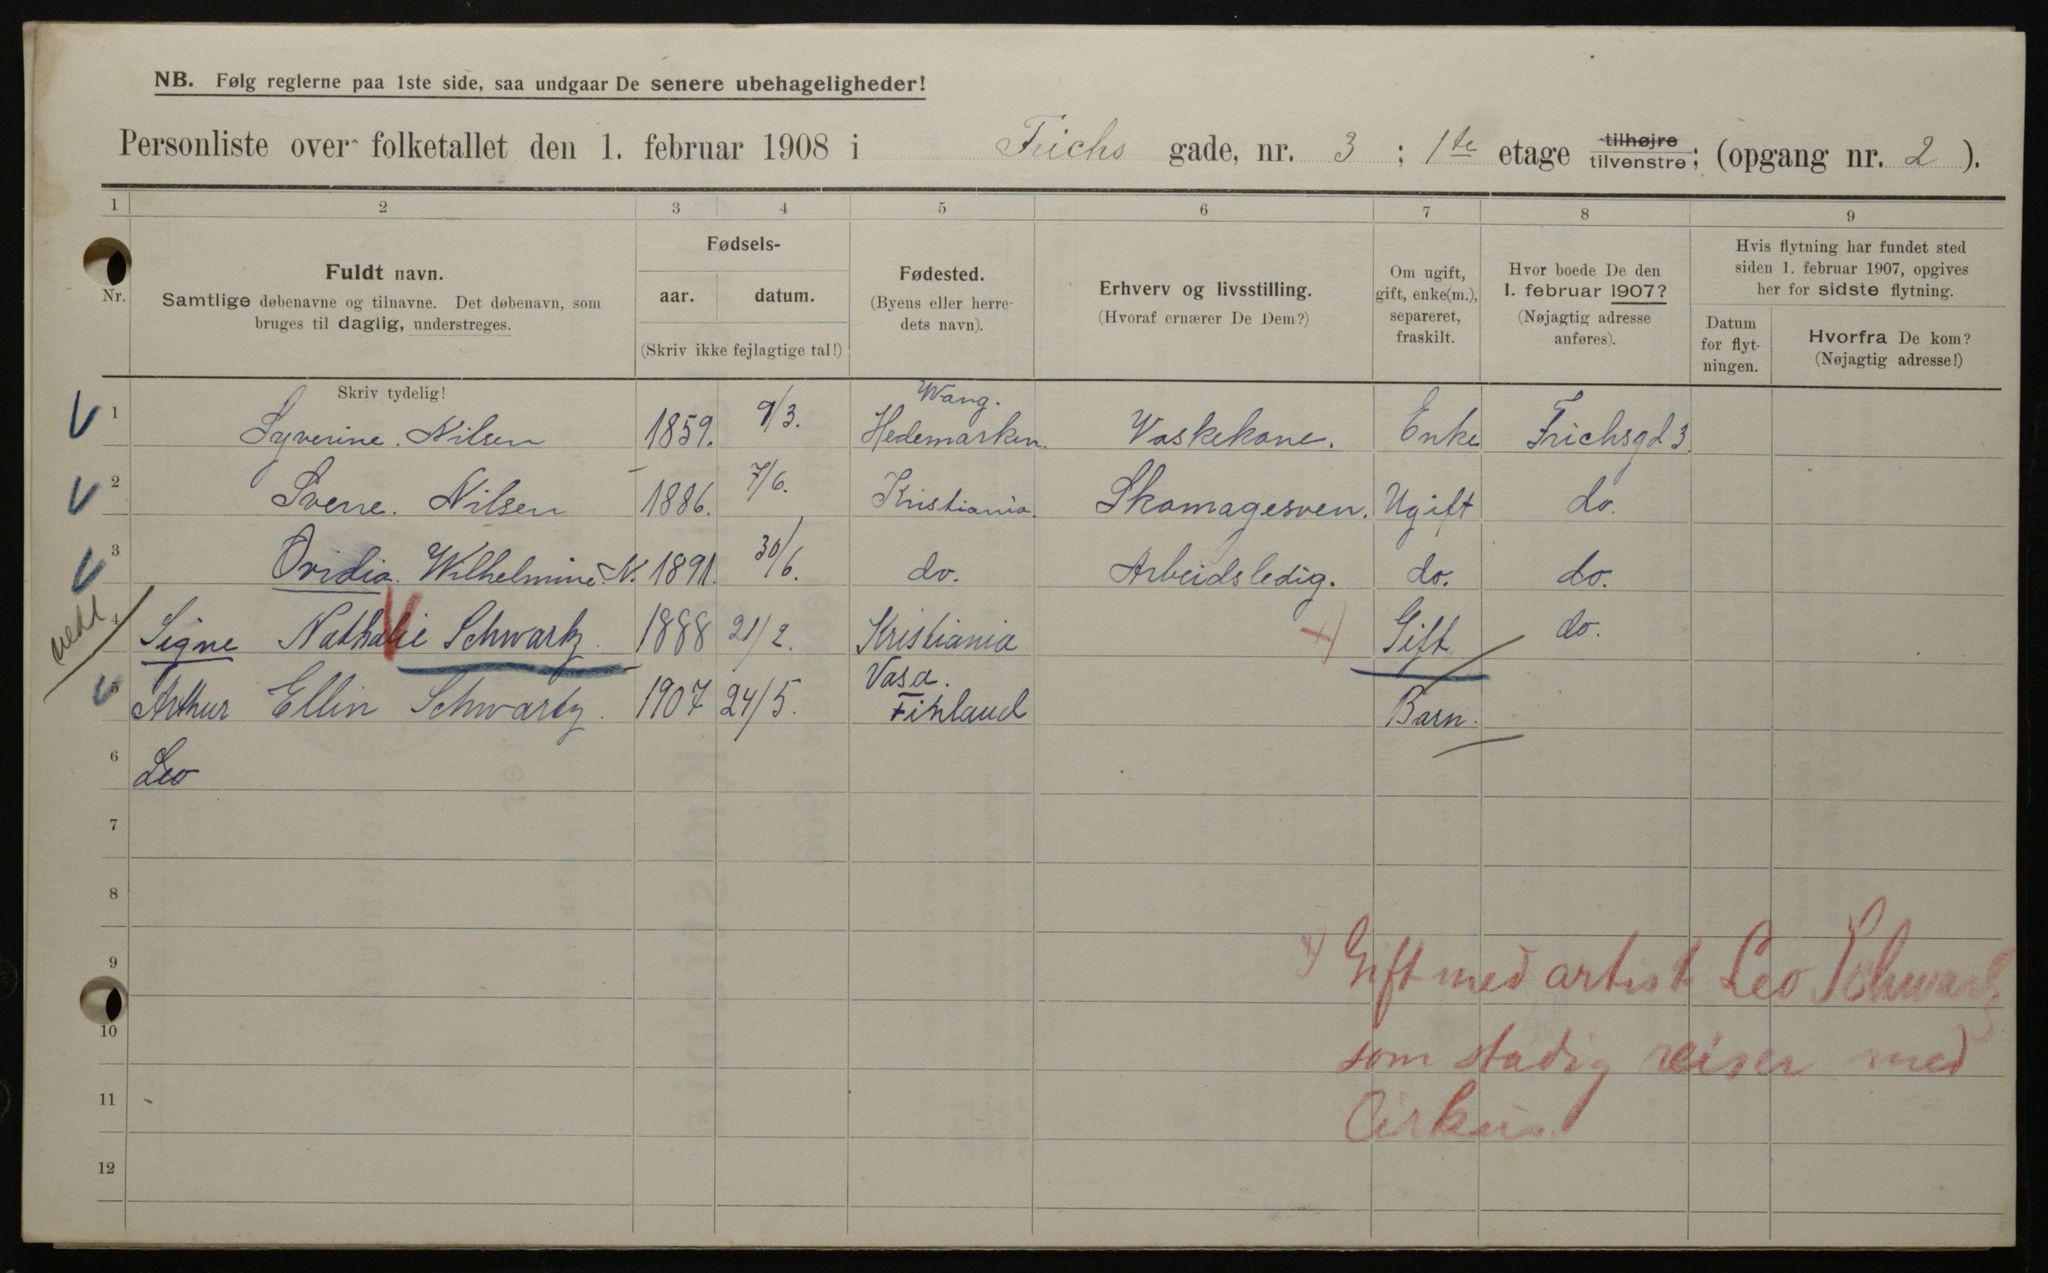 NB. Følg reglerne paa 1ste side, saa undgaar De senere ubehageligheder!
Personliste over folketallet den 1. februar 1908 i Frichs gade, nr. 3 ; 1te etage tilhøjre tilvenstre; (opgang nr. 2 ).
1 2 3 4 5 6 7 8 9
Nr.
Fuldt navn.
Samtlige døbenavne og tilnavne. Det døbenavn, som
bruges til daglig, understreges.
Fødsels-
aar. datum.
(Skriv ikke fejlagtige tal!)
Fødested.
(Byens eller herre-
dets navn).
Erhverv og livsstilling.
(Hvoraf ernærer De Dem?)
Om ugift,
gift, enke(m.),
separeret,
fraskilt.
Hvor boede De den
1. februar 1907?
(Nøjagtig adresse
anføres).
Hvis flytning har fundet sted
siden 1. februar 1907, opgives
her for sidste flytning.
Datum
for flyt-
ningen.
Hvorfra De kom?
(Nøjagtig adresse!)
Skriv tydelig!
1 Syverine. Nilsen 1859. 9/3. Wang. Hedemarken. Vaskekone. Enke Frichsgd 3.
2 Sverre. Nilsen 1886. 7/6. Kristiania. Skomagesven. Ugift do.
3 Ovidia. Wilhelmine N. 1891. 30/6. do. Arbeidsledig. do. do.
4 Signe Nathalie Schwartz. 1888 21/2. Kristiania x) Gift do.
5 Arthur Ellin Schwartz. 1907 24/5. Vasa. Finland Barn.
6 Leo
7
8
9
10
11
12
x) Gift med artist Leo Schwartz
som stadig reiser med
Cirkus.